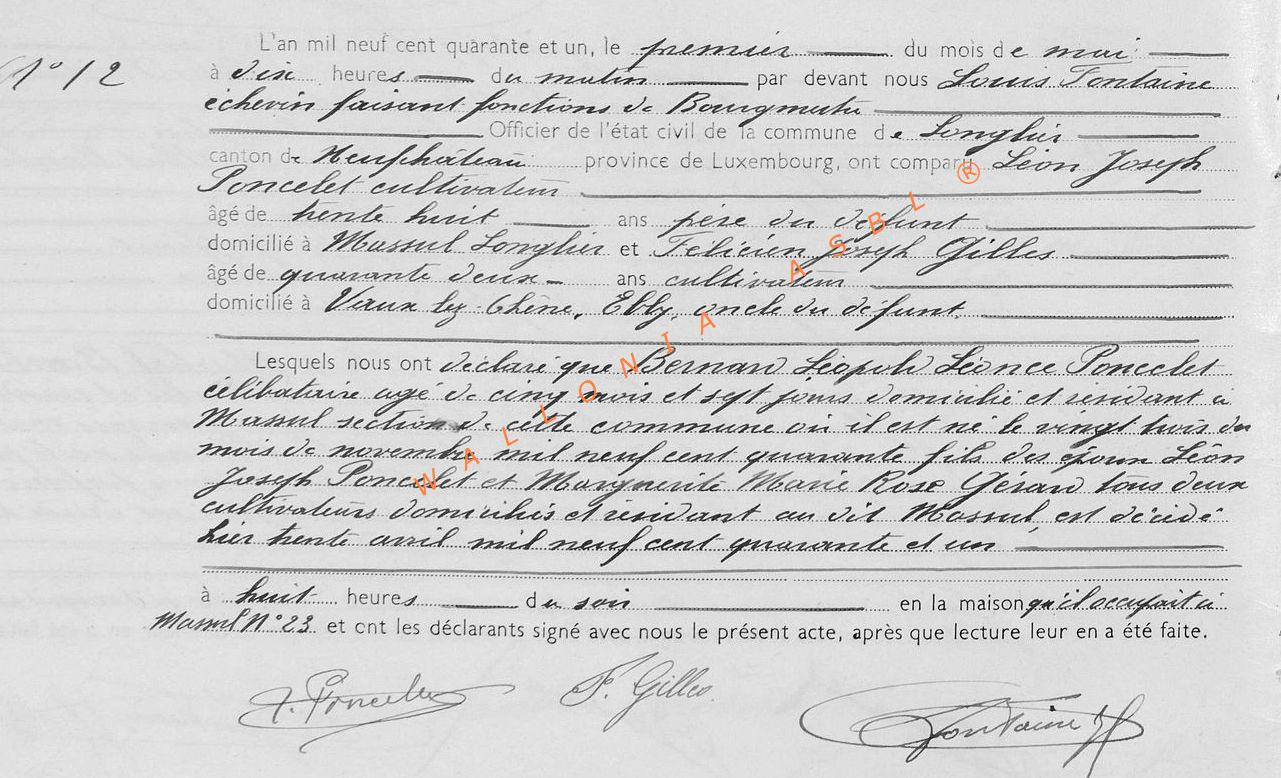 N° 12
L'an mil neuf cent quarante et un, le premier du mois de mai
à dix heures du matin par devant nous Louis Fontaine
échevin faisant fonctions de Bourgmestre
Officier de l'état civil de la commune de Longlier
canton de Neufchâteau province de Luxembourg, ont comparu Léon Joseph
Poncelet cultivateur
âgé de trente huit ans père du défunt
domicilié à Massul Longlier et Félicien Joseph Gilles
âgé de quarante deux ans cultivateur
domicilié à Vaux lez Chêne, Ebly, oncle du défunt.
Lesquels nous ont déclaré que Bernard Léopold Léonce Poncelet
célibataire agé de cinq mois et sept jours domicilié et résidant à
Massul section de cette commune où il est né le vingt trois du
mois de novembre mil neuf cent quarante fils des époux Léon
Joseph Poncelet et Marguerite Marie Rose Gérard tous deux
cultivateurs domiciliés et résidant au dit Massul est décédé
hier trente avril mil neuf cent quarante et un
à huit heures du soir en la maison qu'il occupait à
Massul N° 23 et ont les déclarants signé avec nous le présent acte, après que lecture leur en a été faite.
J. Poncelet F. Gilles Fontaine
WALLONIA ASBL ®